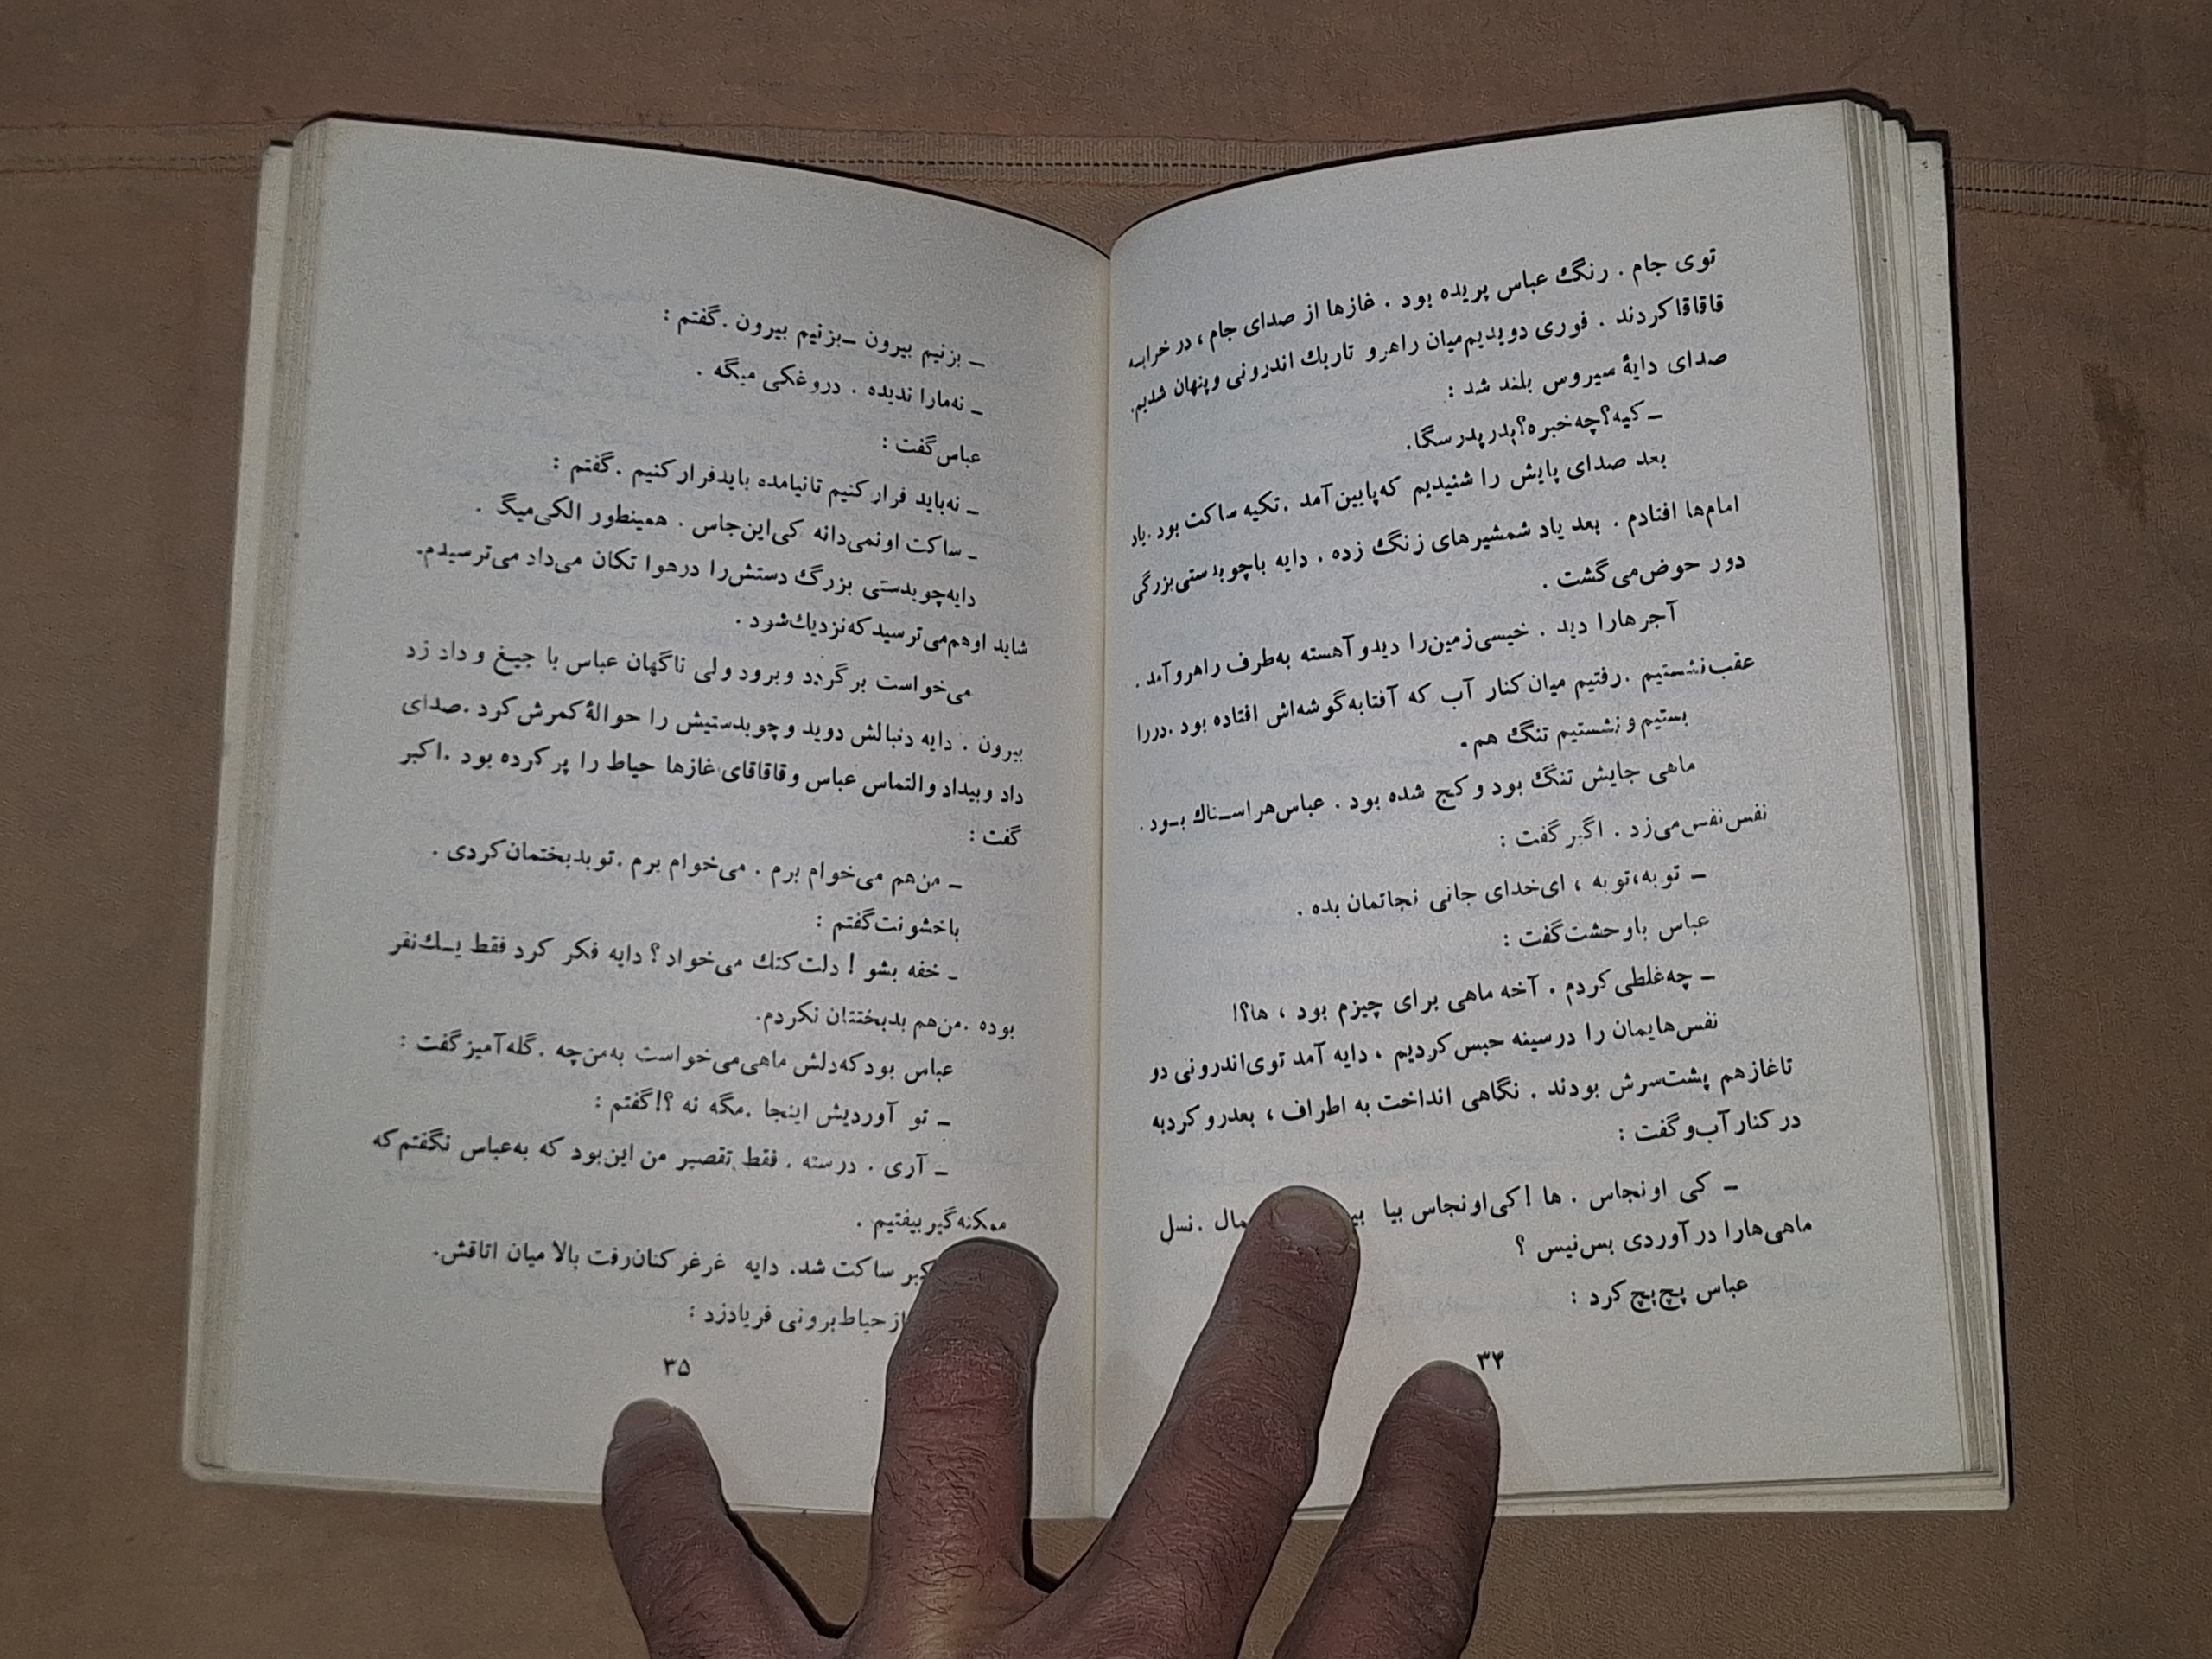 توی جام . رنگ عباس پریده بود . غازها از صدای جام ، در خرابه
قاقاقا کردند . فوری دویدیم‌میان راهرو تاریك اندرونی و پنهان شدیم.
صدای دایهٔ سیروس بلند شد :
ـ کیه؟چه‌خبره؟پدر پدر سگا.
بعد صدای پایش را شنیدیم که‌پایین‌آمد .تکیه ساکت بود .یاد
امام‌ها افتادم . بعد یاد شمشیرهای زنگ زده . دایه باچوبدستی‌بزرگی
دور حوض‌می‌گشت .
آجرهارا دید . خیسی‌زمین‌را دیدو آهسته به‌طرف راهروآمد .
عقب‌نشستیم .رفتیم میان‌کنار آب که آفتابه‌گوشه‌اش افتاده بود .دررا
بستیم و نشستیم تنگ هم.
ماهی جایش تنگ بود و کج شده بود . عباس‌هراسـناك بـود .
نفس‌نفس‌می‌زد . اکبر گفت :
ـ توبه،توبه ، ای‌خدای جانی نجاتمان بده .
عباس باوحشت‌گفت :
ـ چه‌غلطی‌کردم . آخه ماهی برای چیزم بود ، ها؟!
نفس‌هایمان را درسینه حبس‌کردیم ، دایه آمد توی‌اندرونی دو
تاغازهم پشت‌سرش بودند . نگاهی انداخت به اطراف ، بعدرو کردبه
در کنار آب‌و گفت :
ـ کی اونجاس . ها !کی‌اونجاس بیا مال .نسل
ماهی‌هارا در آوردی بس‌نیس ؟
عباس پچ‌پچ کرد :
۳۴
ـ بزنیم بیرون ـبزنیم بیرون .گفتم :
ـ نه‌مارا ندیده . دروغکی میگه .
عباس‌گفت :
ـ نه‌باید فرار کنیم تانیامده بایدفرار کنیم .گفتم :
ـ ساکت اونمی‌دانه کی‌این‌جاس . همینطور الکی‌میگ .
دایه‌چوبدستی بزرگ دستش‌را درهوا تکان می‌داد می‌ترسیدم.
شاید اوهم‌می‌ترسید که‌نزدیك‌شود .
می‌خواست برگردد و برود ولی ناگهان عباس با جیغ و داد زد
بیرون . دایه دنبالش دوید و چوبدستیش را حوالهٔ کمرش‌کرد .صدای
داد و بیداد و التماس عباس و قاقاقای غازها حیاط را پر کرده بود .اکبر
گفت :
ـ من‌هم می‌خوام برم . می‌خوام برم .توبدبختمان‌کردی .
باخشونت‌گفتم :
ـ خفه بشو ! دلت‌کتك می‌خواد؟ دایه فکر کرد فقط یـك‌نفر
بوده .من‌هم بدبختتان نکردم.
عباس بود که‌دلش ماهی‌می‌خواست به‌من‌چه .گله‌آمیز گفت :
ـ تو آوردیش اینجا .مگه نه ؟!گفتم :
ـ آری . درسته . فقط تقصیر من این‌بود که به‌عباس نگفتم‌که
ممکنه‌گیر بیفتیم .
ساکت شد. دایه غرغر کنان‌رفت بالا میان اتاقش.
از حیاط‌برونی فریادزد :
۳۵